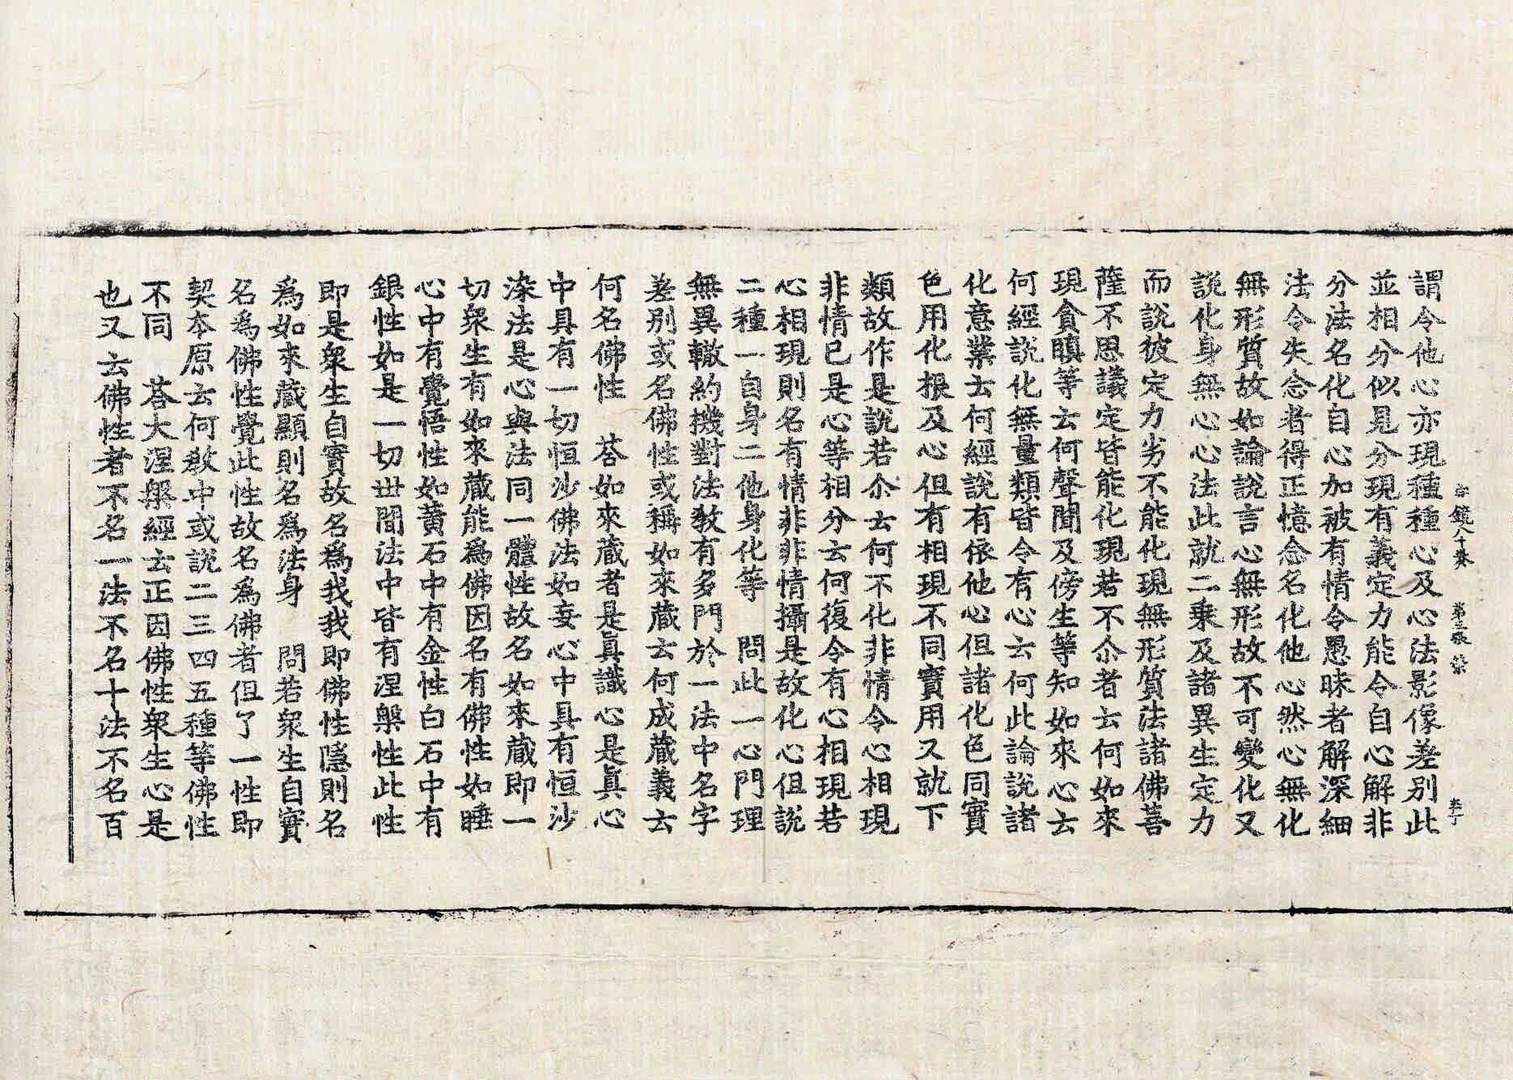 謂令他心亦現種種心及心法影像差別此
並相分似見分現有義定力能令自心解非
分法名化自心加被有情令愚昧者解深細
法令失念者得正憶念名化他心然心無化
無形質故如論說言心無形故不可變化又
說化身無心心法此就二乗及諸異生定力
而說彼定力劣不能化現無形質法諸佛菩
薩不思議定皆能化現若不尒者云何如來
現貪瞋等云何聲聞及傍生等知如來心云
何經說化無量類皆令有心云何此論說諸
化意業云何經說有依他心但諸化色同實
色用化根及心但有相現不同實用又就下
類故作是說若尒云何不化非情令心相現
非情已是心等相分云何復令有心相現若
心相現則名有情非非情攝是故化心但說
二種一自身二他身化等　問此一心門理
無異轍約機對法教有多門於一法中名字
差別或名佛性或稱如來藏云何成藏義云
何名佛性　荅如來藏者是眞識心是眞心
中具有一切恒沙佛法如妄心中具有恒沙
染法是心與法同一體性故名如來藏即一
切衆生有如來藏能爲佛因名有佛性如睡
心中有覺悟性如黃石中有金性白石中有
銀性如是一切世間法中皆有涅槃性此性
即是衆生自實故名爲我我即佛性隱則名
爲如來藏顯則名爲法身　問若衆生自實
名爲佛性覺此性故名爲佛者但了一性即
契本原云何教中或說二三四五種等佛性
不同　荅大涅槃經云正因佛性衆生心是
也又云佛性者不名一法不名十法不名百
鏡八十卷　第三張